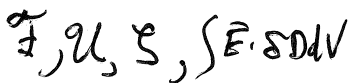 F̃, U, ζ, ∫ E̅·δDdV